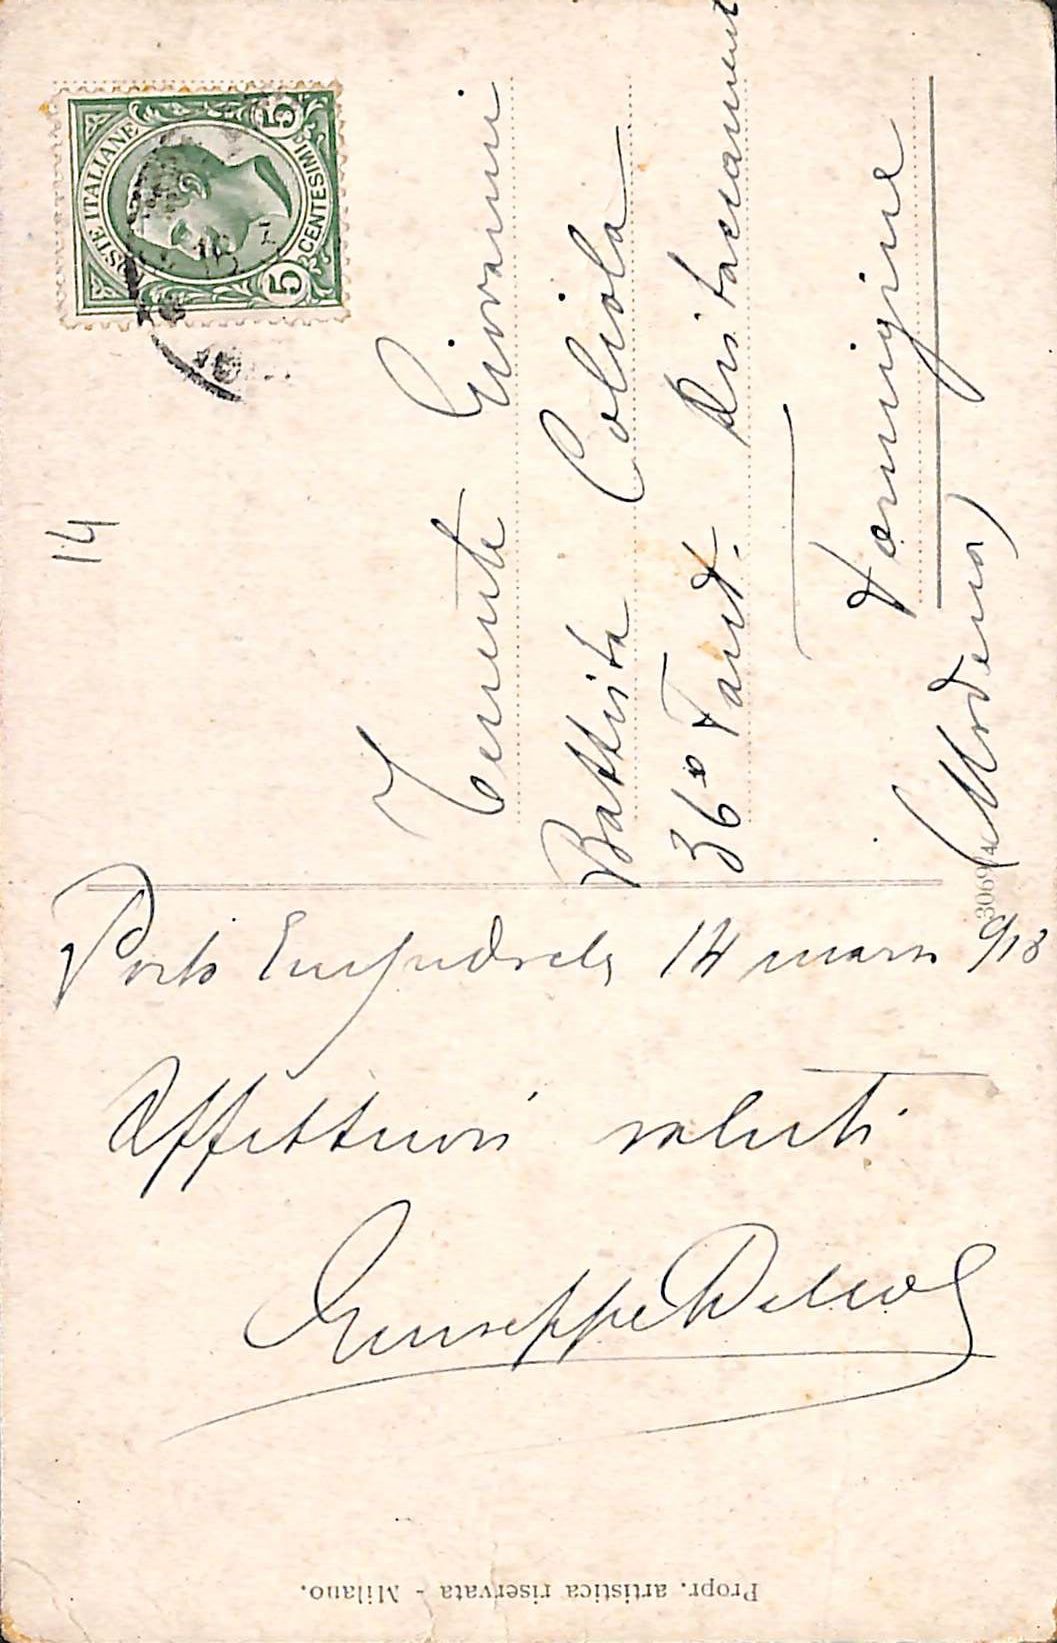 POSTE ITALIANE
5 CENTESIMI 5
14
Tenente Giovanni
Battista Coliola
36º Fant. Distaccament
Formigine
(Modena)
Porto Empedocle 14 marzo 913
Affettuosi saluti
Giuseppe
Propr. artistica riservata - Milano.